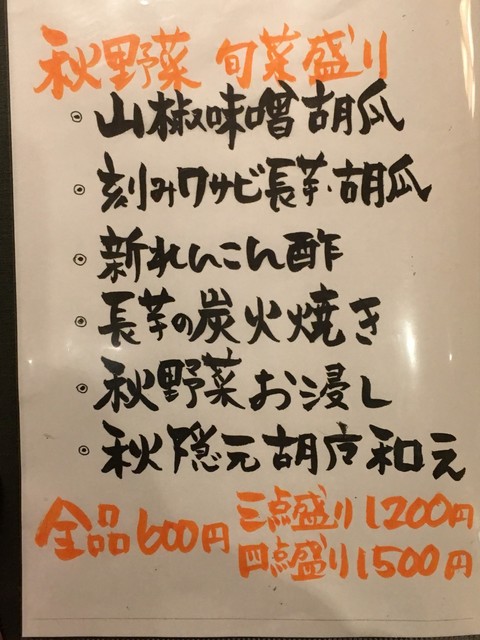 秋野菜 旬菜盛り
◎ 山椒味噌胡瓜
◎ 刻みワサビ長芋・胡瓜
◎ 新れんこん酢
◎ 長芋の炭火焼き
◎ 秋野菜お浸し
◎ 秋隠元胡麻和え
全品600円
三点盛り1200円
四点盛り1500円